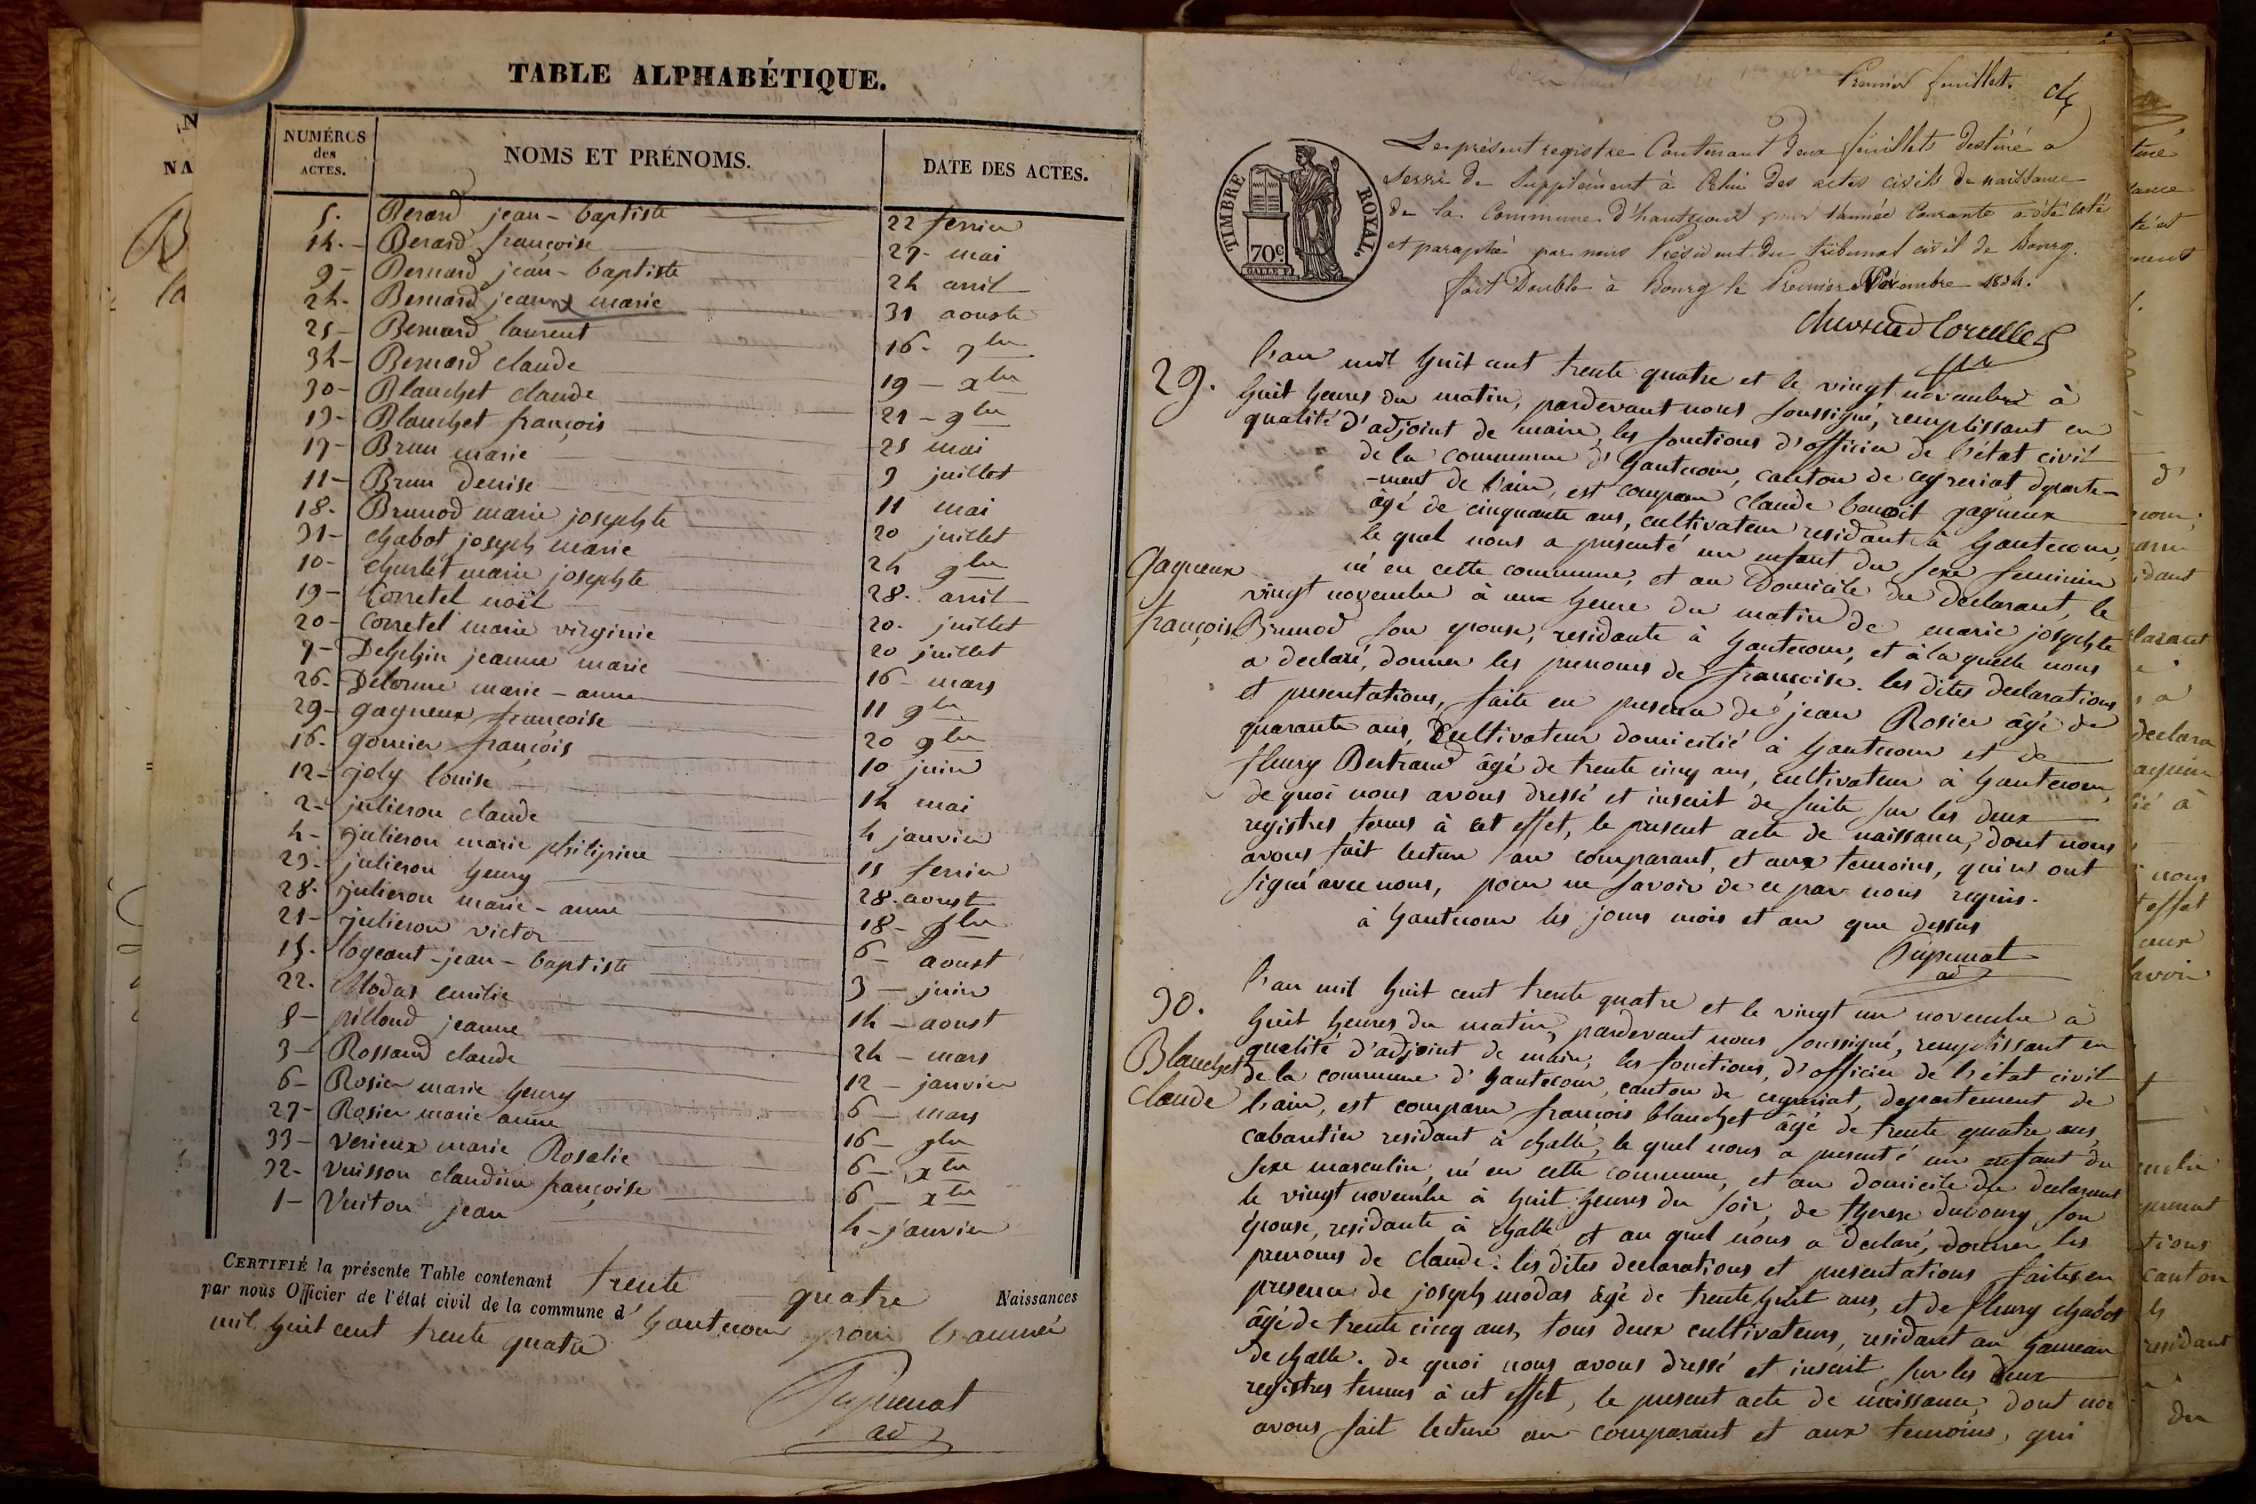 TABLE ALPHABÉTIQUE.
NUMÉROS des ACTES.
NOMS ET PRÉNOMS.
DATE DES ACTES.
5. Berard jean-baptiste 22 fevrier
14. Berard françoise 27. mai
9 Bernard jean-baptiste 24 avril
24. Bernard jeanne marie 31 aoust
25 Bernard laurent 16. 7bre
34 Bernard claude 19 xbre
30 Blanchet claude 21 9bre
13 Blanchet françois 21 mai
17 Brun marie 9 juillet
11 Brun denise 11 mai
18. Brunod marie josephte 20 juillet
31 Chabot joseph marie 24 9bre
10 Churlet marie josephte 28. avril
19 Corretel noël 20. juillet
20 Corretel marie virginie 20 juillet
7 Delphin jeanne marie 16 mars
26. Delorme marie-anne 11 9bre
29 gagneux françoise 20 9bre
16. gonier françois 10 juin
12 joly louise 14 mai
2 julieron claude 4 janvier
4 julieron marie philipine 15 fevrier
23. julieron henry 28. aoust
28. julieron marie-anne 18 9bre
21 julieron victor 6 aoust
15. logeant jean-baptiste 3 juin
22. Modas emilie 14 aoust
8 pilloud jeanne 24 mars
3 Rossand claude 12 janvier
6 Rosier marie henry 6 mars
27 Rosier marie anne 16 9bre
33 Verieux marie Rosalie 6 xbre
32. Vuisson claudine françoise 6 xbre
1 Vuiton jean 4 janvier
CERTIFIÉ la présente Table contenant trente quatre Naissances
par nous Officier de l'état civil de la commune d'hautecour pour l'année
mil huit cent trente quatre
ad
Premier feuillet.
TIMBRE ROYAL.
70c
Le présent registre Contenant deux feuillets destiné a
servir de Supplément à Celui des actes civils de naissance
de la Commune d'hautecour pour l'année Courante a été coté
et paraphé par nous Président du Tribunal civil de Bourg.
fait Double à Bourg le Premier Décembre 1834.
29.
gagneux
françoise
L'an mil huit cent trente quatre et le vingt novembre à
huit heures du matin, pardevant nous soussigné, remplissant en
qualité d'adjoint de maire, les fonctions d'officier de l'état civil
de la commune d'hautecour, canton de ceyzeriat departe-
-ment de l'ain, est comparu claude benoit gagneux
âgé de cinquante ans, cultivateur residant à hautecour,
le quel nous a presenté un enfant du sexe feminin
né en cette commune, et au Domicile du declarant, le
vingt novembre à une heure du matin de marie josephte
Brunod son epouse, residante à hautecour, et à la quelle nous
a declaré, donner les prenoms de françoise. les dites declarations
et presentations, faite en presence de jean Rosier âgé de
quarante ans, Cultivateur domicilié à hautecour et de
fleury Bertrand âgé de trente cinq ans, cultivateur à hautecour,
de quoi nous avons dressé et inscrit de suite sur les deux
registres tenus à cet effet, le present acte de naissance, dont nous
avons fait lecture au comparant, et aux temoins, qui n'ont
signé avec nous, pour ne savoir de ce par nous requis.
à hautecour les jours mois et an que dessus
ad
30.
Blanchet
Claude
L'an mil huit cent trente quatre et le vingt un novembre à
huit heures du matin, pardevant nous soussigné, remplissant en
qualité d'adjoint de maire, les fonctions, d'officier de l'état civil
de la commune d'hautecour, canton de ceyzeriat, departement de
l'ain, est comparu françois blanchet âgé de trente quatre ans,
cabaretier residant à challe, le quel nous a presenté un enfant du
sexe masculin, né en cette commune, et au domicile du declarant
le vingt novembre à huit heures du soir, de therese dubourg son
épouse, residante à challe et au quel nous a declaré, donner les
prenoms de claude: les dites declarations et presentations faites en
presence de joseph modas âgé de trente huit ans, et de fleury chabot
âgé de trente cinq ans, tous deux cultivateurs, residant au hameau
de challe. de quoi nous avons dressé et inscrit, sur les deux
registres tenus à cet effet, le present acte de naissance, dont nou
avons fait lecture au comparant et aux temoins, qui